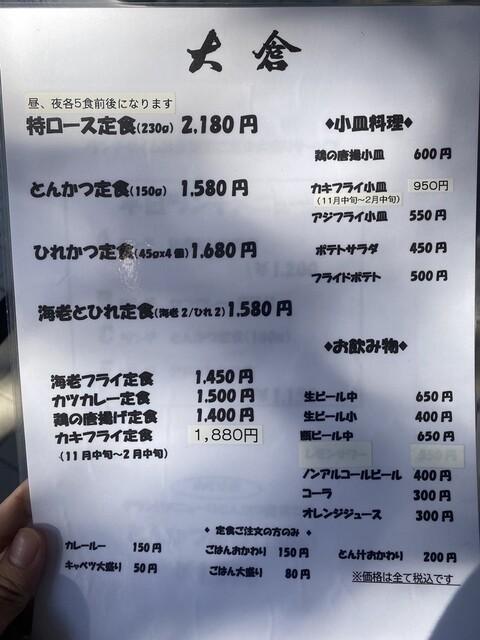 大倉
昼、夜各5食前後になります
特ロース定食(230g) 2,180円
とんかつ定食(150g) 1,580円
ひれかつ定食(45g×4個) 1,680円
海老とひれ定食(海老2/ひれ2) 1,580円
海老フライ定食 1,450円
カツカレー定食 1,500円
鶏の唐揚げ定食 1,400円
カキフライ定食 1,880円
(11月中旬〜2月中旬)
◆小皿料理◆
鶏の唐揚小皿 600円
カキフライ小皿 950円
(11月中旬〜2月中旬)
アジフライ小皿 550円
ポテトサラダ 450円
フライドポテト 500円
◆お飲み物◆
生ビール中 650円
生ビール小 400円
瓶ビール中 650円
ノンアルコールビール 400円
コーラ 300円
オレンジジュース 300円
◆ 定食ご注文の方のみ ◆
カレールー 150円 ごはんおかわり 150円 とん汁おかわり 200円
キャベツ大盛り 50円 ごはん大盛り 80円
※価格は全て税込です